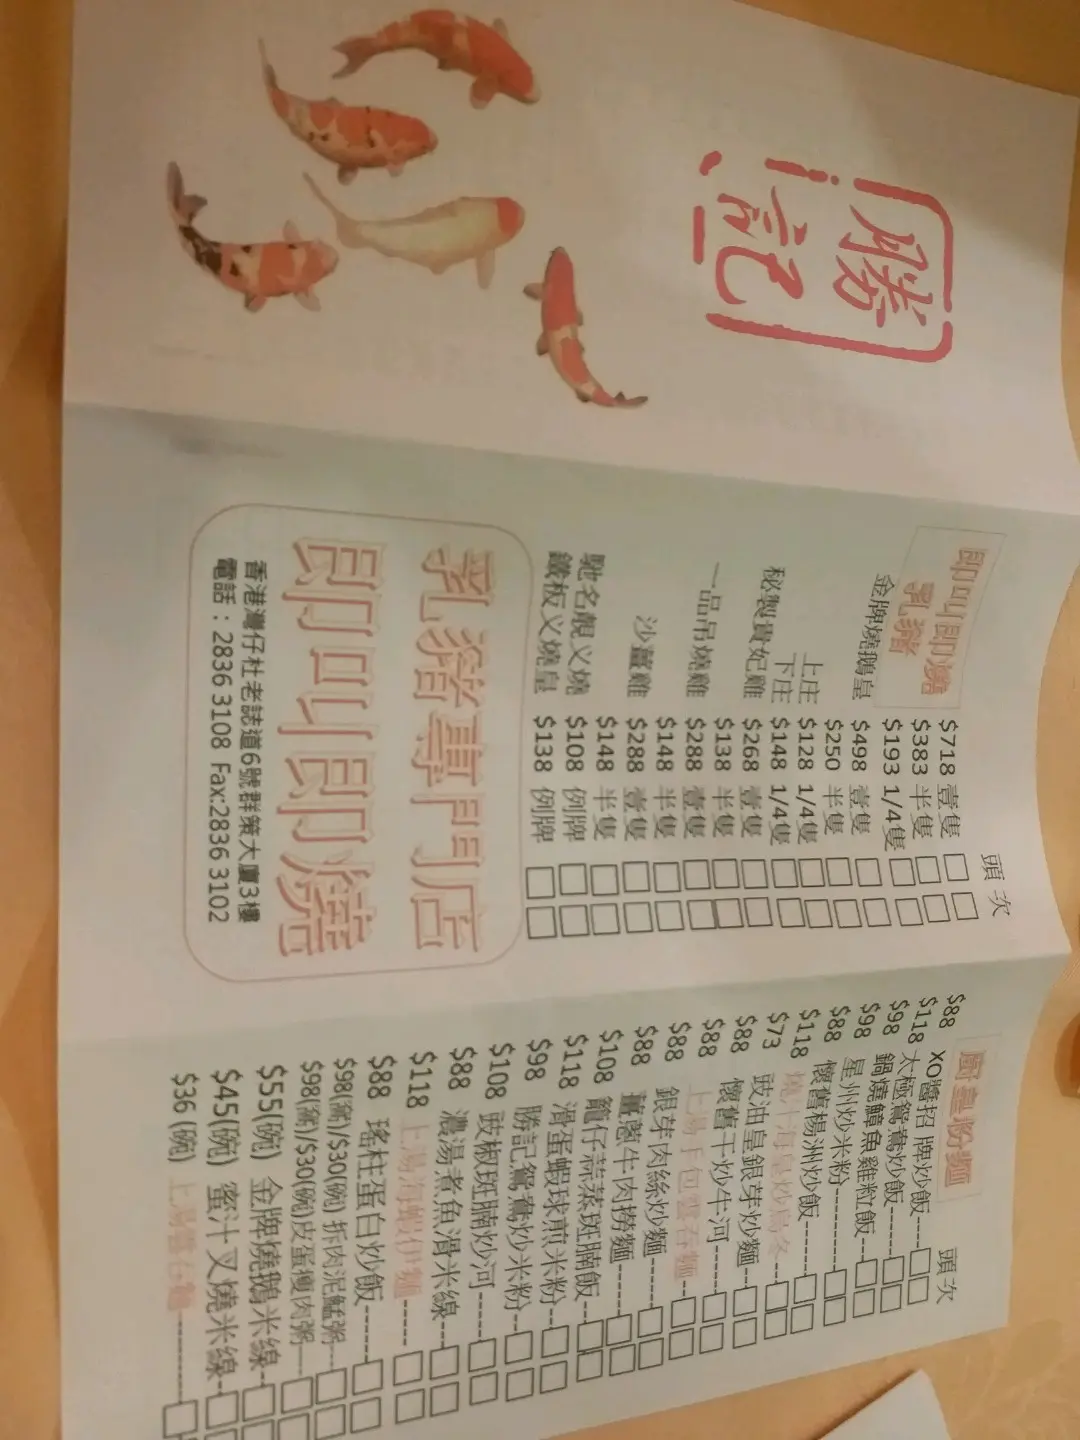 勝記
即叫即燒
乳豬
頭 次
$718 壹隻
$383 半隻
$193 1/4隻
金牌燒鵝皇 $498 壹隻
$250 半隻
上庄 $128 1/4隻
下庄 $148 1/4隻
秘製貴妃雞 $268 壹隻
$138 半隻
一品吊燒雞 $288 壹隻
$148 半隻
沙薑雞 $288 壹隻
$148 半隻
馳名靚叉燒 $108 例牌
鐵板叉燒皇 $138 例牌
乳豬專門店
即叫即燒
香港灣仔杜老誌道6號群策大廈3樓
電話：2836 3108 Fax:2836 3102
廚皇粉麵
頭次
$88 XO醬招牌炒飯
$118 太極鴛鴦炒飯
$98 鍋燒鱆魚雞粒飯
$98 星州炒米粉
$88 懷舊楊洲炒飯
$118 燒汁海皇炒烏冬
$73 豉油皇銀芽炒麵
$88 懷舊干炒牛河
$88 上湯手包雲吞麵
$88 銀芽肉絲炒麵
$88 薑蔥牛肉撈麵
$108 籠仔蒜蒸斑腩飯
$118 滑蛋蝦球煎米粉
$98 勝記鴛鴦炒米粉
$108 豉椒斑腩炒河
$88 濃湯煮魚滑米線
$118 上湯海蝦伊麵
$88 瑤柱蛋白炒飯
$98(窩)/$30(碗) 拆肉泥鯭粥
$98(窩)/$30(碗)皮蛋瘦肉粥
$55(碗) 金牌燒鵝米線
$45(碗) 蜜汁叉燒米線
$36 (碗) 上湯雲吞麵